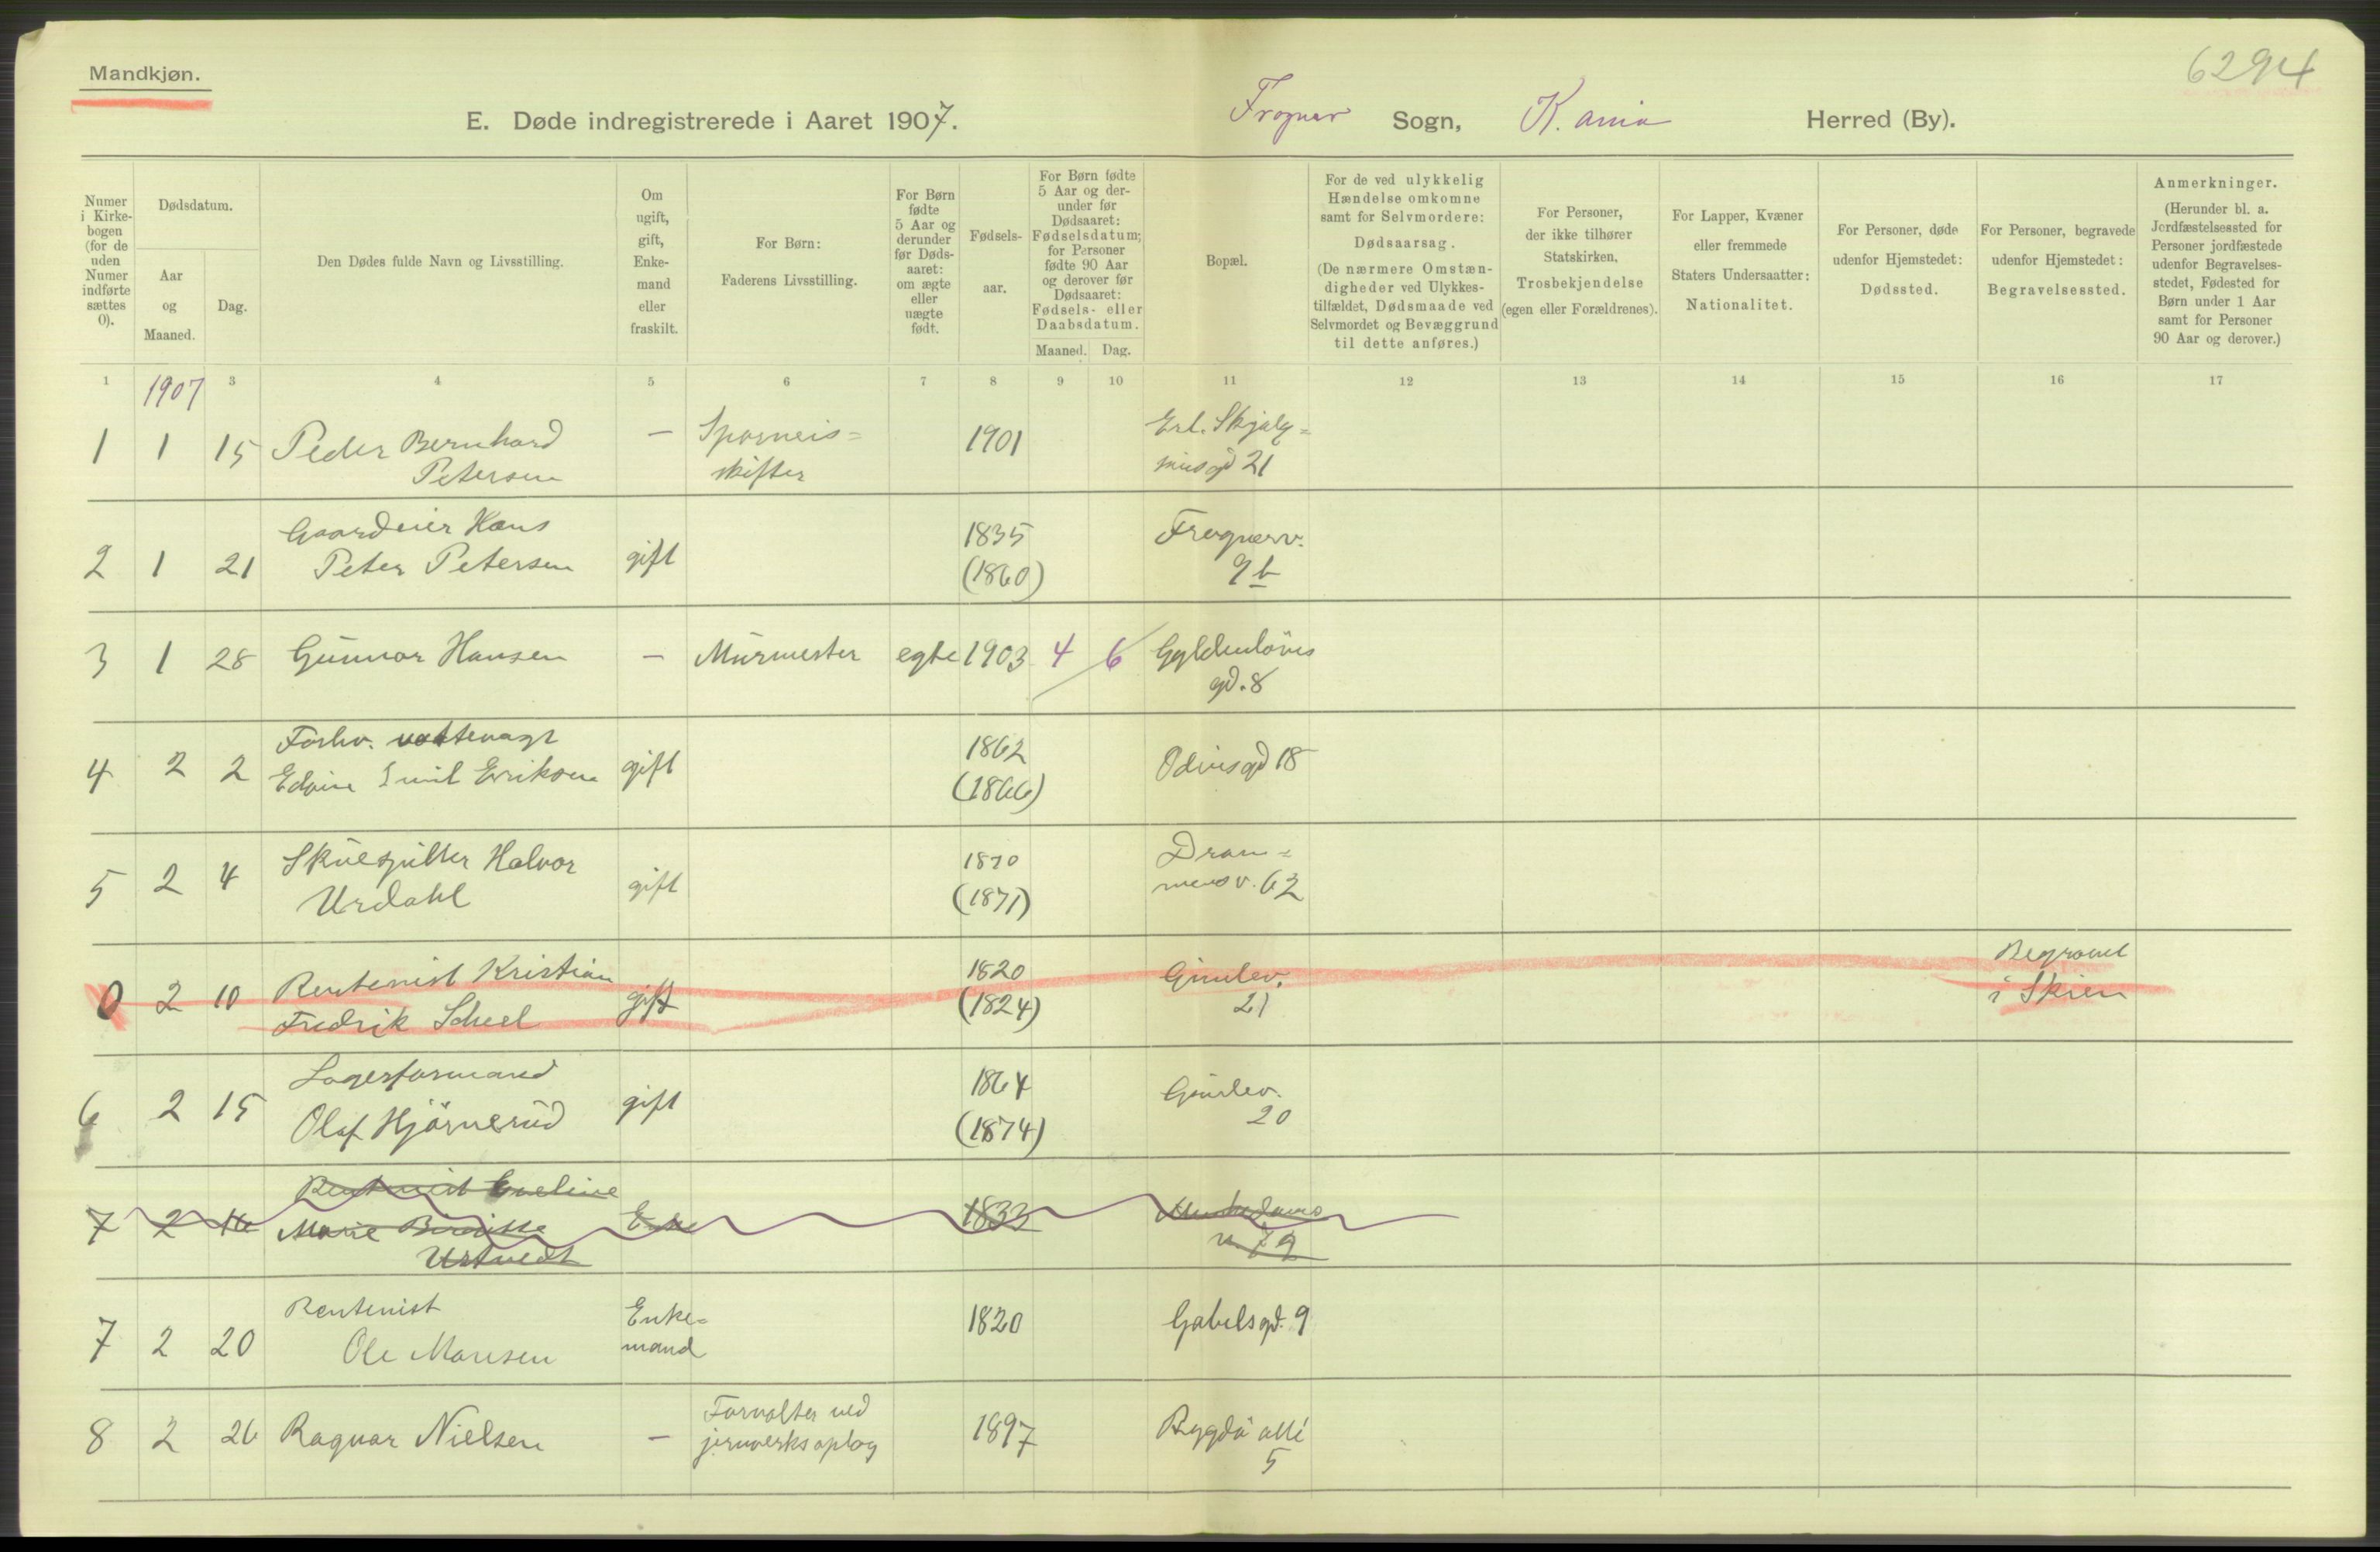 Mandkjøn.
6294
E. Døde indregistrerede i Aaret 1907.
Frogner Sogn, K.ania Herred (By).
Numer
i Kirke-
bogen
(for de
uden
Numer
indførte
sættes
0).
Dødsdatum.
Aar
og
Maaned.
Dag.
Den Dødes fulde Navn og Livsstilling.
Om
ugift,
gift,
Enke-
mand
eller
fraskilt.
For Børn:
Faderens Livsstilling.
For Børn
fødte
5 Aar og
derunder
før Døds-
aaret:
om ægte
eller
uægte
født.
Fødsels-
aar.
For Børn fødte
5 Aar og der-
under før
Dødsaaret:
Fødselsdatum;
for Personer
fødte 90 Aar
og derover før
Dødsaaret:
Fødsels- eller
Daabsdatum.
Maaned. Dag.
Bopæl.
For de ved ulykkelig
Hændelse omkomne
samt for Selvmordere:
Dødsaarsag.
(De nærmere Omstæn-
digheder ved Ulykkes-
tilfældet, Dødsmaade ved
Selvmordet og Bevæggrund
til dette anføres.)
For Personer,
der ikke tilhører
Statskirken,
Trosbekjendelse
(egen eller Forældrenes).
For Lapper, Kvæner
eller fremmede
Staters Undersaatter:
Nationalitet.
For Personer, døde
udenfor Hjemstedet:
Dødssted.
For Personer, begravede
udenfor Hjemstedet:
Begravelsessted.
Anmerkninger.
(Herunder bl. a.
Jordfæstelsessted for
Personer jordfæstede
udenfor Begravelses-
stedet, Fødested for
Børn under 1 Aar
samt for Personer
90 Aar og derover.)
1 1907 3 4 5 6 7 8 9 10 11 12 13 14 15 16 17
1 1 15 Peder Bernhard
Petersen
– Sporveis=
skifter
1901
Erl. Skjalg=
sønsgd 21
2 1 21 Gaardeier Hans
Peter Petersen
gift
1835
(1860)
Frognerv.
9b
3 1 28 Gunnar Hansen – Murmester egte 1903 4 6 Gyldenløves
gd. 8
4 2 2 Forhv.
Edvin Emil Eriksen
gift
1862
(1866)
Odinsgd 18
5 2 4 Skuespiller Halvor
Urdahl
gift
1870
(1871)
Dram=
mensv. 62
0 2 10 Rentenist Kristian
Fredrik Scheel
gift
1820
(1824)
Gimlev.
21
Begravet
i Skien
6 2 15 Lagerformand
Olaf Hjørnerud
gift
1864
(1874)
Gimlev.
20
7 2 16 Rentenist Eveline
Marie Birgitte
Urtvedt
Enke
1833
Munkedams
v. 79
7 2 20 Rentenist
Ole Mansen
Enke=
mand
1820
Gabelsgd. 9
8 2 26 Ragnar Nielsen
– Forvalter ved
jernverksoplag
1897
Bygdø allé
5